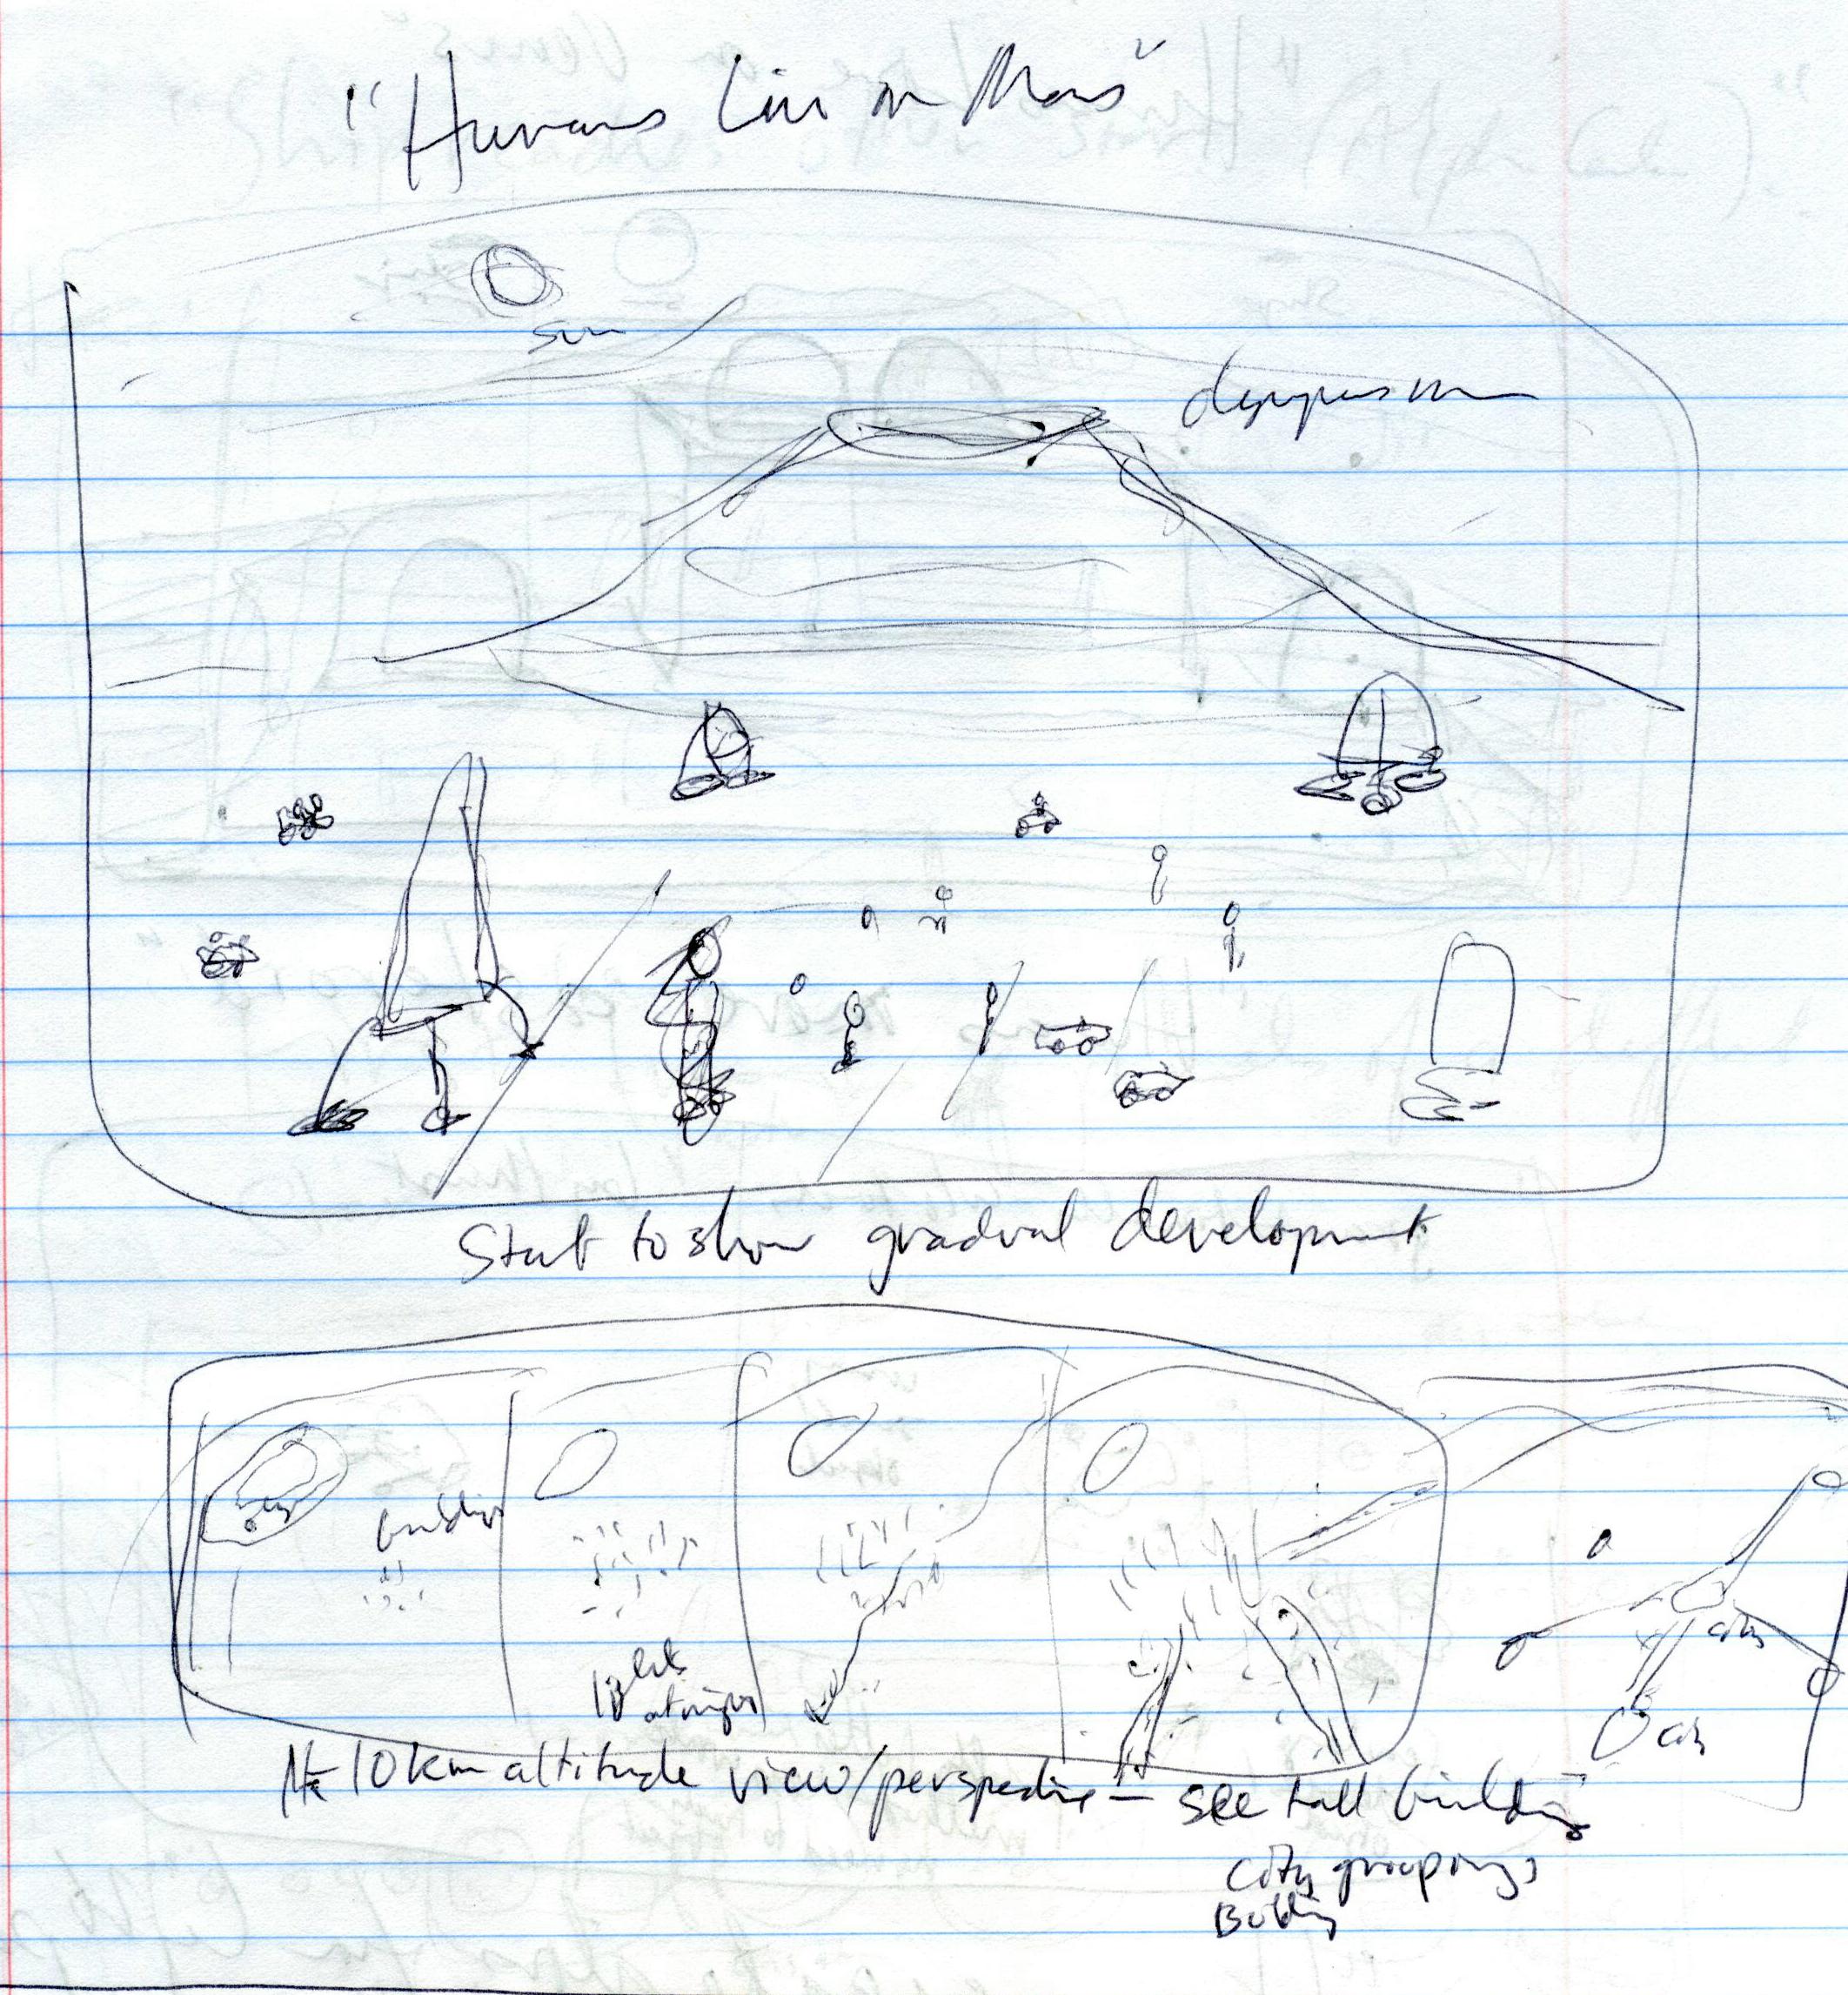 "Humans Live on Mars"
sun
Olympus mons
Start to show gradual development
buildings
lights
at night
city
city
10 km altitude view/perspective - see tall buildings
city groupings
Building